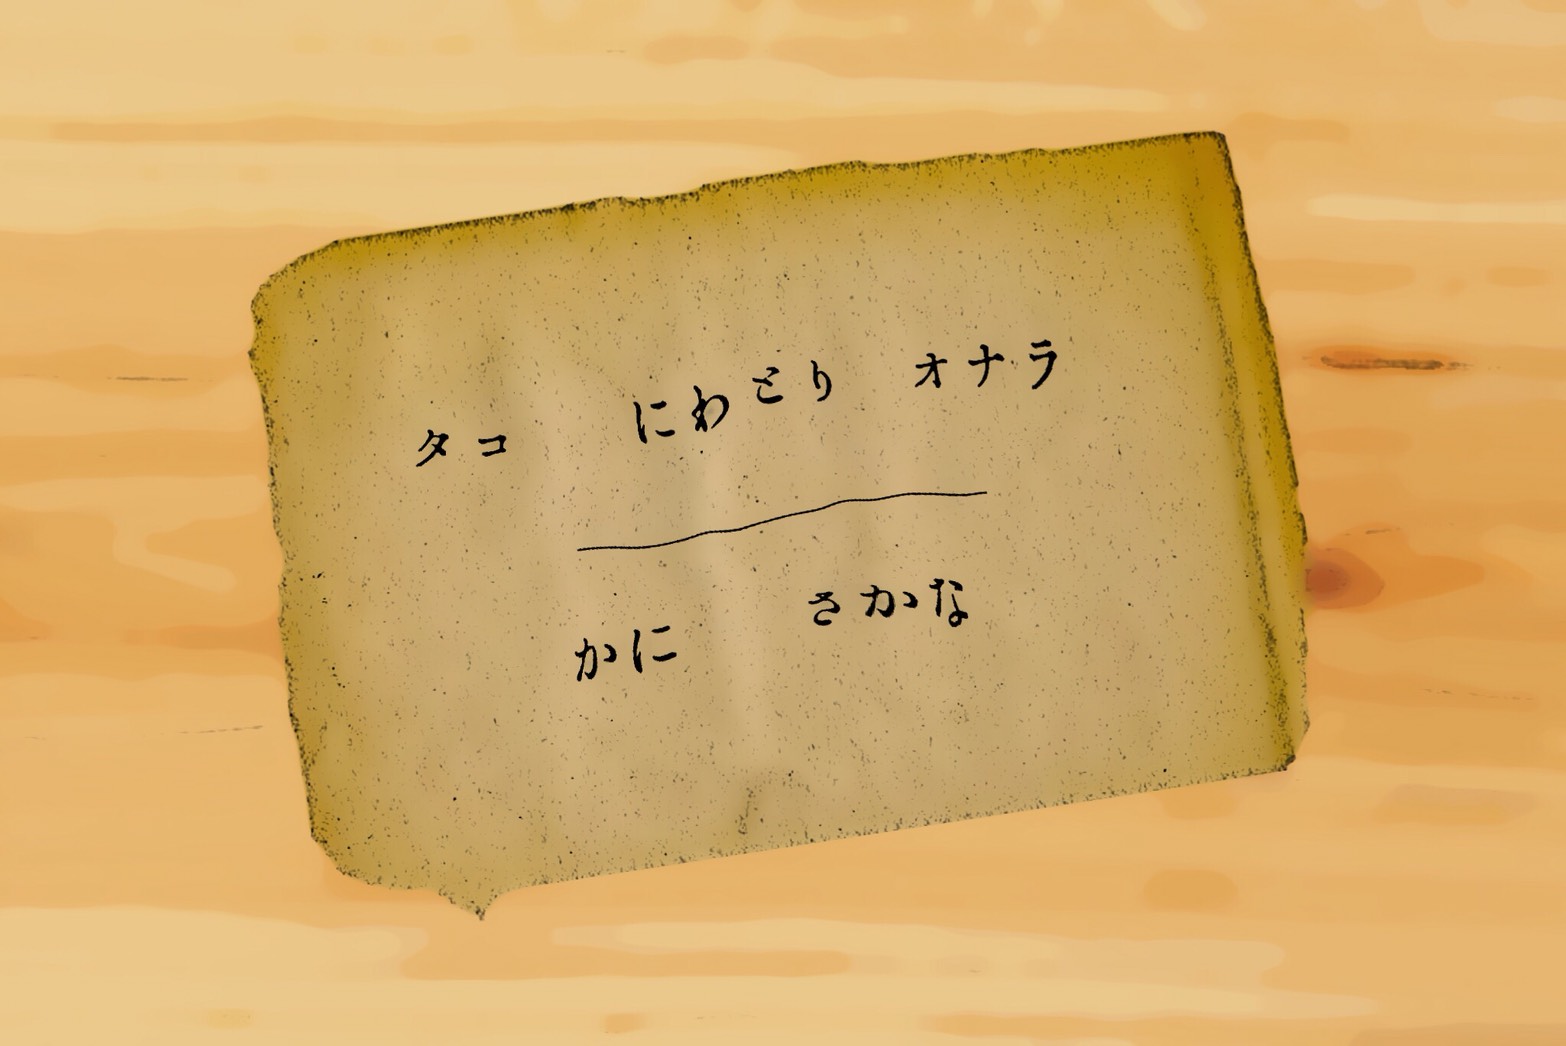 タコ にわとり オナラ
かに さかな